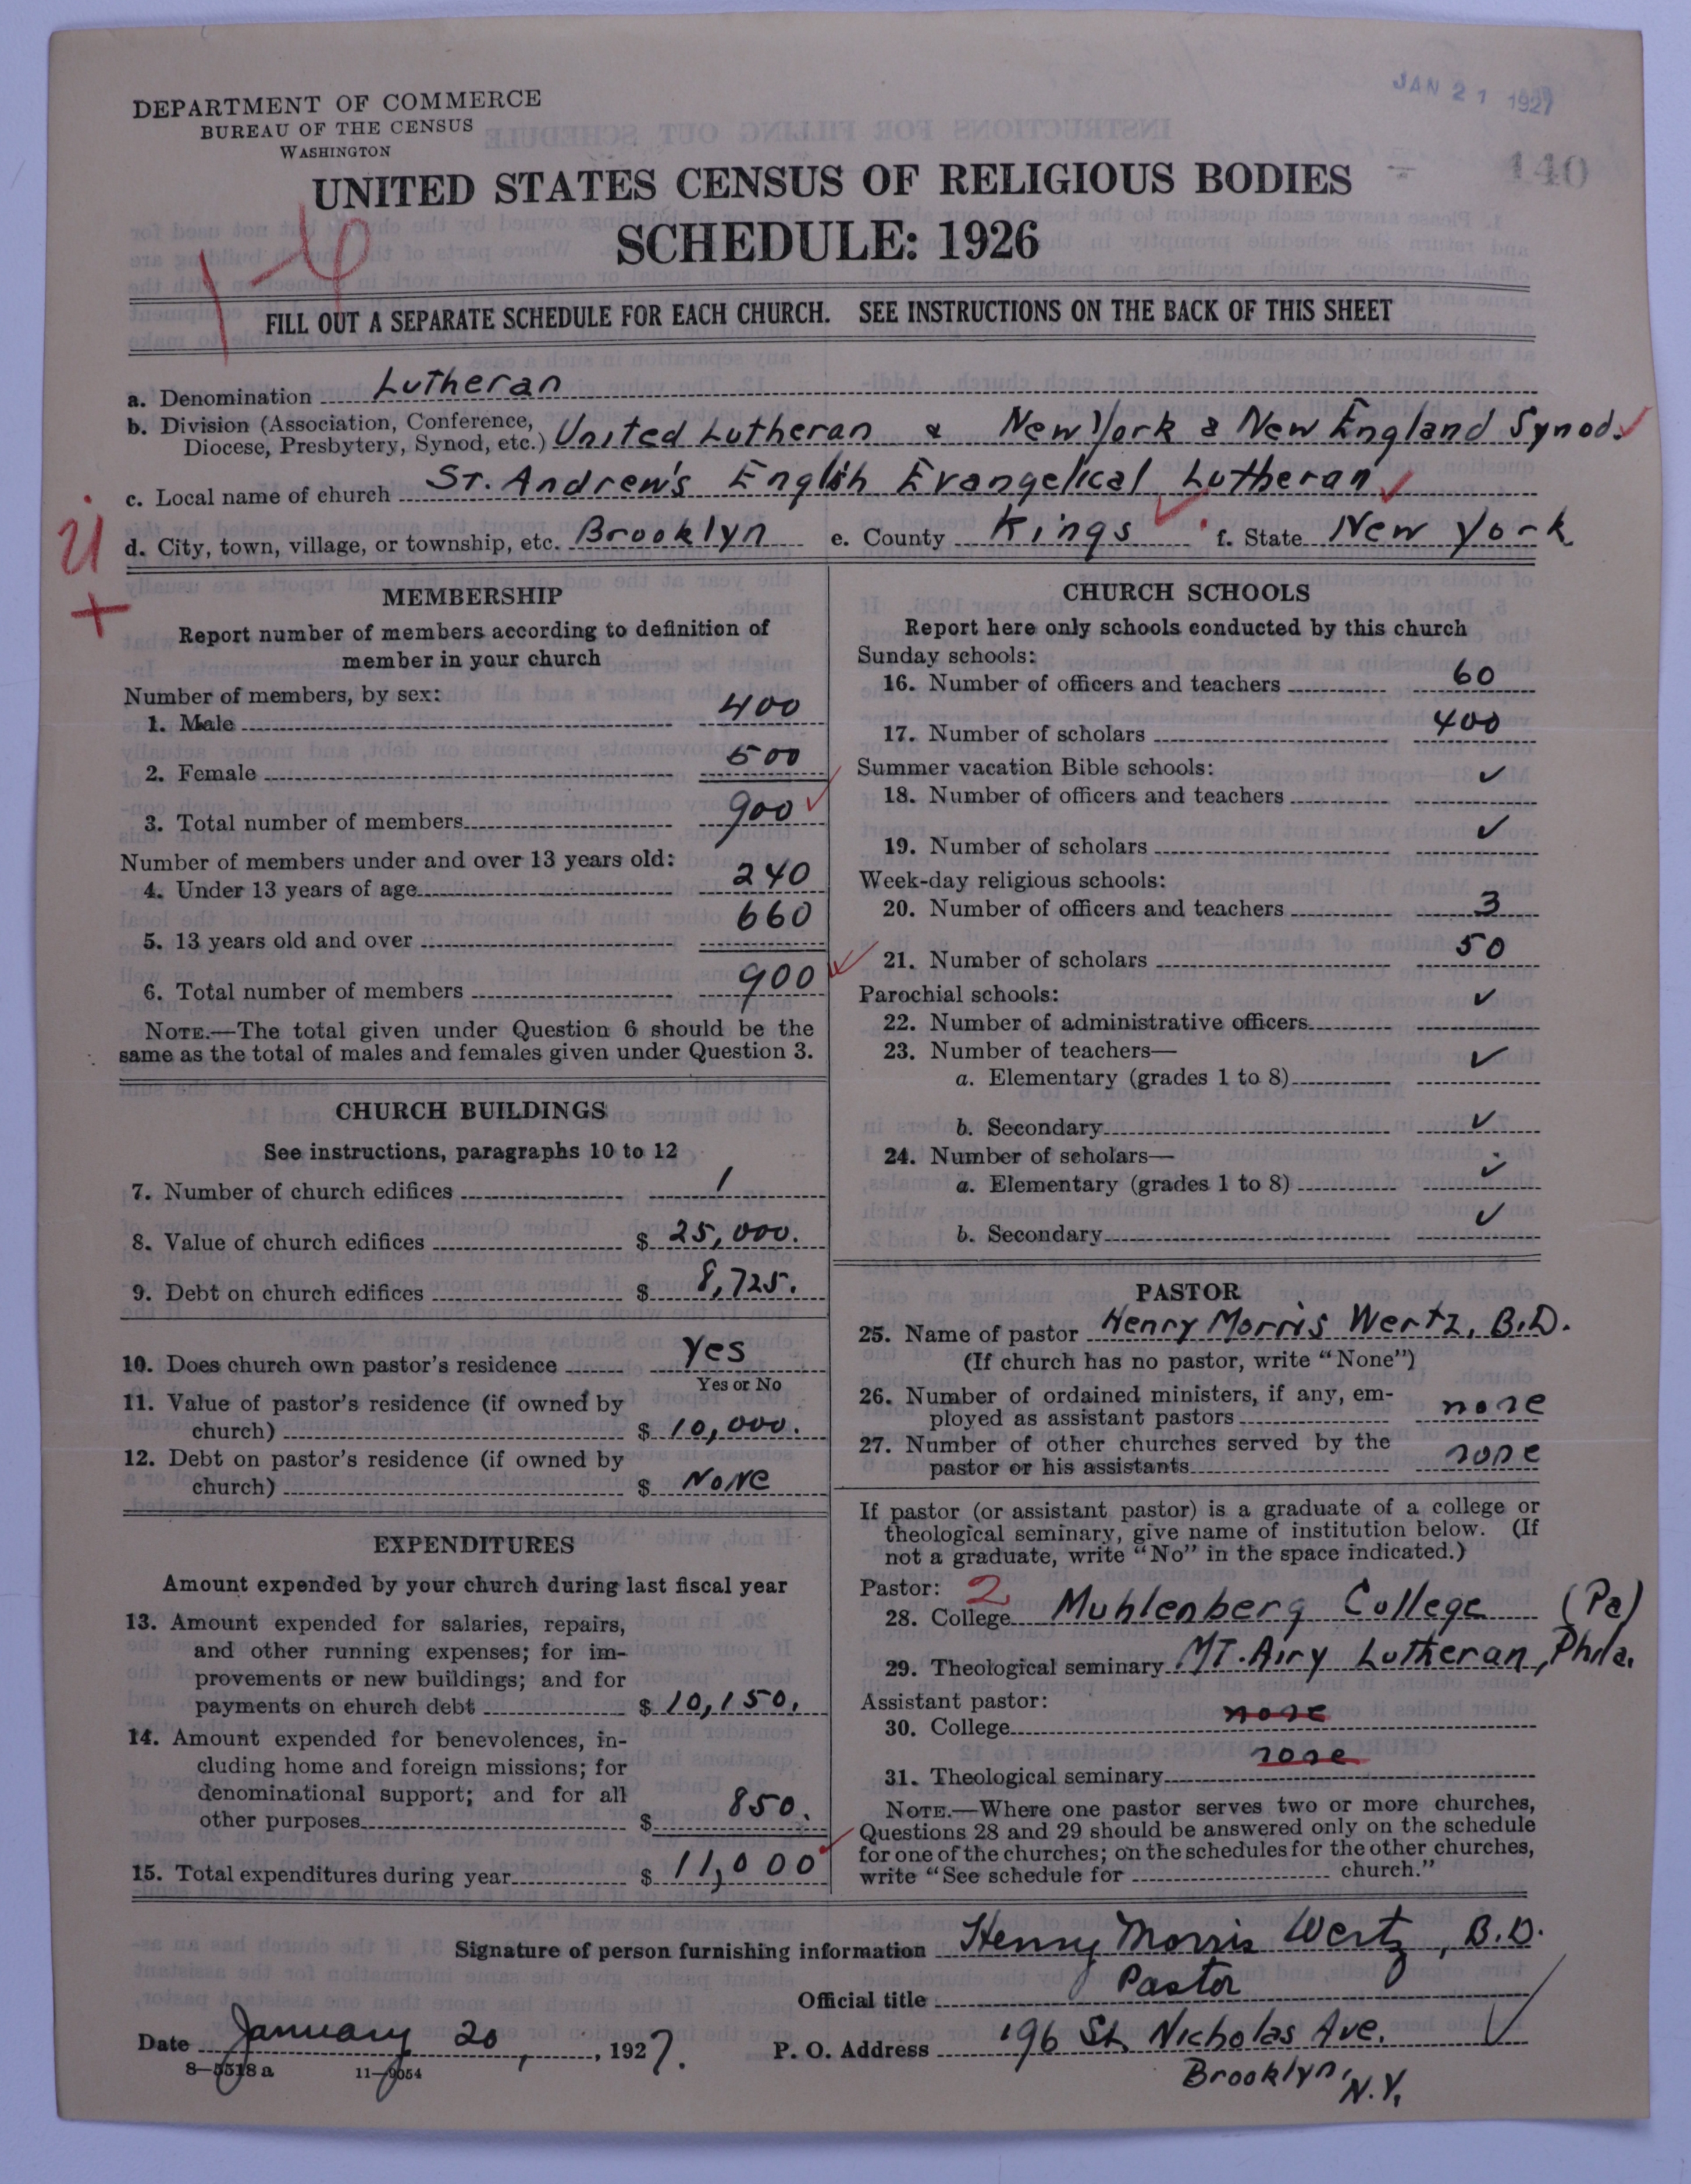 JAN 21 1927
140
DEPARTMENT OF COMMERCE
BUREAU OF THE CENSUS
WASHINGTON
UNITED STATES CENSUS OF RELIGIOUS BODIES
SCHEDULE: 1926
FILL OUT A SEPARATE SCHEDULE FOR EACH CHURCH. SEE INSTRUCTIONS ON THE BACK OF THIS SHEET
a. Denomination Lutheran
b. Division (Association, Conference,
Diocese, Presbytery, Synod, etc.) United Lutheran & New York & New England Synod.
c. Local name of church St. Andrew's English Evangelical Lutheran
d. City, town, village, or township, etc. Brooklyn e. County Kings f. State New York
MEMBERSHIP
Report number of members according to definition of
member in your church
Number of members, by sex:
1. Male 400
2. Female 500
3. Total number of members 900
Number of members under and over 13 years old:
4. Under 13 years of age 240
5. 13 years old and over 660
6. Total number of members 900
NOTE.—The total given under Question 6 should be the
same as the total of males and females given under Question 3.
CHURCH BUILDINGS
See instructions, paragraphs 10 to 12
7. Number of church edifices 1
8. Value of church edifices $ 25,000.
9. Debt on church edifices $ 8,725.
10. Does church own pastor's residence Yes
Yes or No
11. Value of pastor's residence (if owned by
church) $ 10,000.
12. Debt on pastor's residence (if owned by
church) $ None
EXPENDITURES
Amount expended by your church during last fiscal year
13. Amount expended for salaries, repairs,
and other running expenses; for im-
provements or new buildings; and for
payments on church debt $ 10,150.
14. Amount expended for benevolences, in-
cluding home and foreign missions; for
denominational support; and for all
other purposes $ 850.
15. Total expenditures during year $ 11,000
CHURCH SCHOOLS
Report here only schools conducted by this church
Sunday schools:
16. Number of officers and teachers 60
17. Number of scholars 400
Summer vacation Bible schools:
18. Number of officers and teachers ✓
19. Number of scholars ✓
Week-day religious schools:
20. Number of officers and teachers 3
21. Number of scholars 50
Parochial schools:
22. Number of administrative officers ✓
23. Number of teachers—
a. Elementary (grades 1 to 8) ✓
b. Secondary ✓
24. Number of scholars—
a. Elementary (grades 1 to 8) ✓
b. Secondary ✓
PASTOR
25. Name of pastor Henry Morris Wertz, B.D.
(If church has no pastor, write "None")
26. Number of ordained ministers, if any, em-
ployed as assistant pastors none
27. Number of other churches served by the
pastor or his assistants none
If pastor (or assistant pastor) is a graduate of a college or
theological seminary, give name of institution below. (If
not a graduate, write "No" in the space indicated.)
Pastor: 2
28. College Muhlenberg College (Pa)
29. Theological seminary Mt. Airy Lutheran, Phila.
Assistant pastor:
30. College none
31. Theological seminary none
NOTE.—Where one pastor serves two or more churches,
Questions 28 and 29 should be answered only on the schedule
for one of the churches; on the schedules for the other churches,
write "See schedule for church."
Signature of person furnishing information Henry Morris Wertz, B.D.
Official title Pastor
Date January 20, 1927. P. O. Address 196 St. Nicholas Ave.
Brooklyn, N.Y.
8—5518 a 11—9054